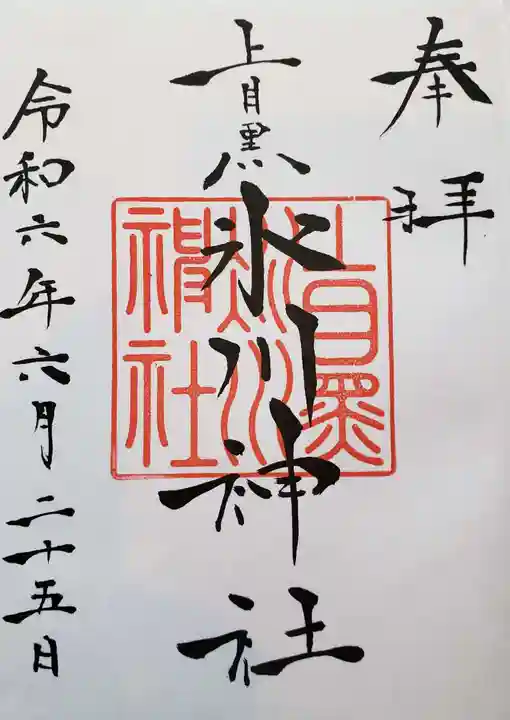 奉拝
上目黒氷川神社
令和六年六月二十五日
上目黒
氷川
神社